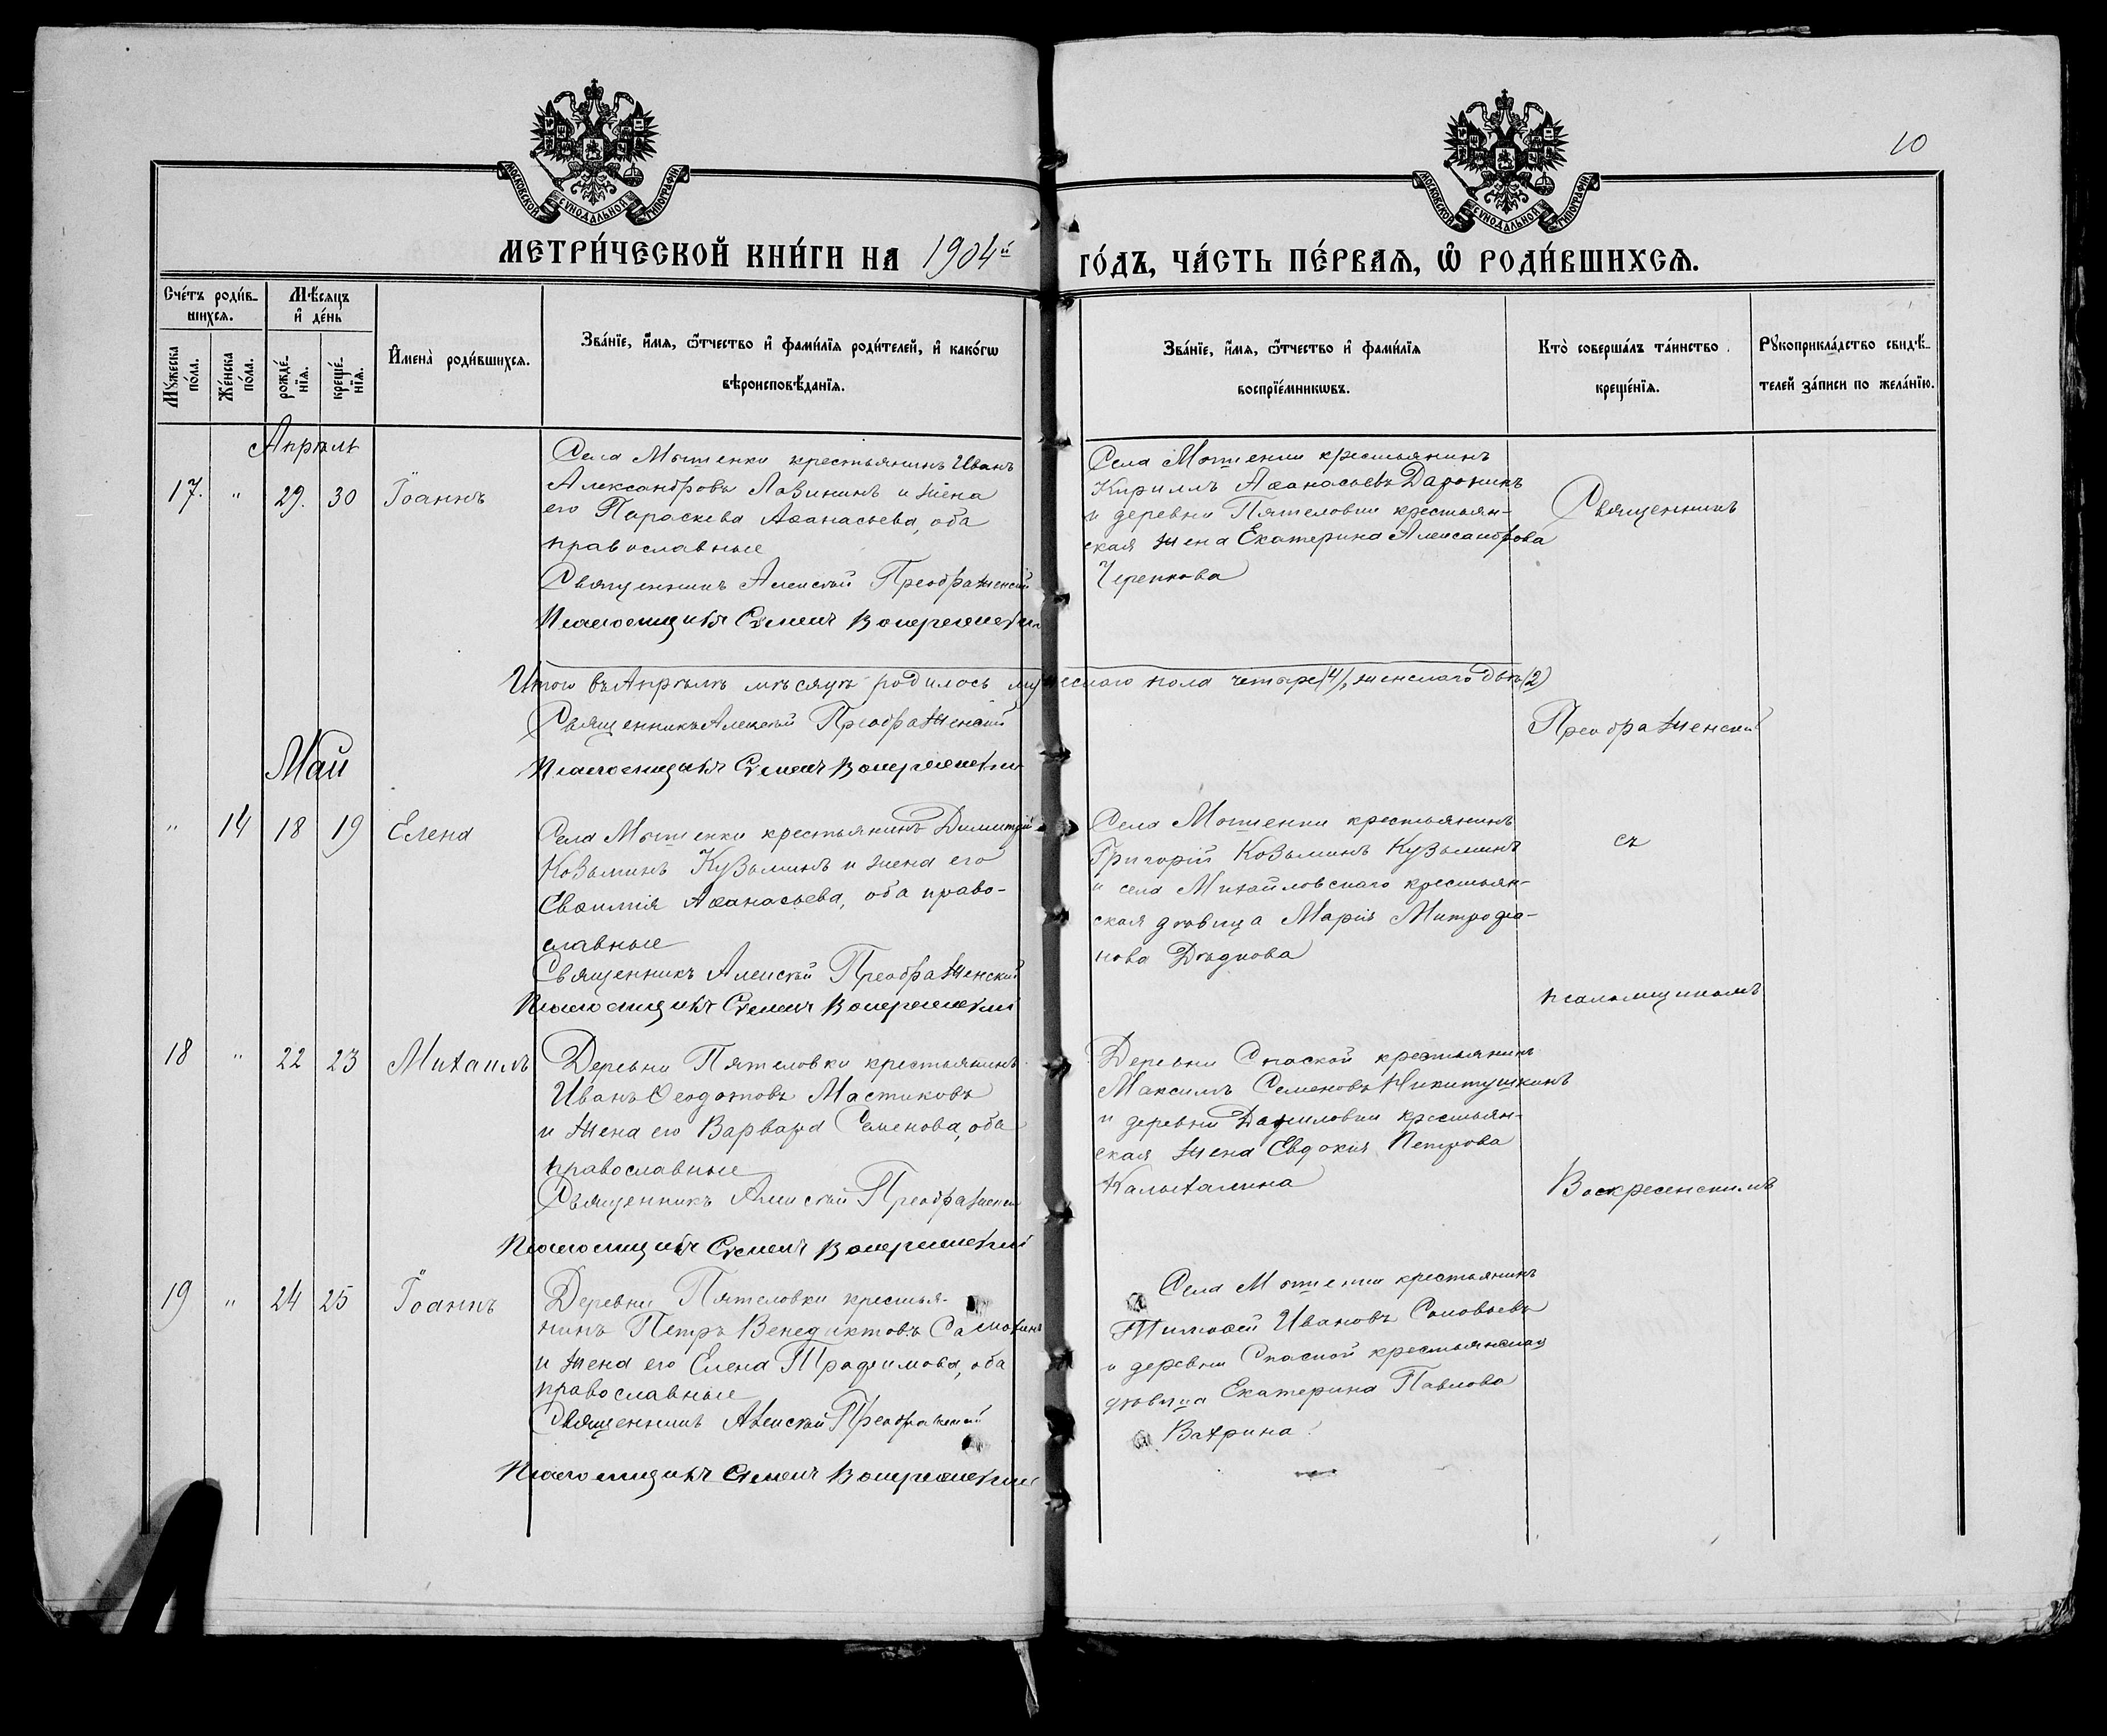 10
МОСКОВСКОЙ СѴНОДАЛЬНОЙ ТИПОГРАФІИ
МОСКОВСКОЙ СѴНОДАЛЬНОЙ ТИПОГРАФІИ
МЕТРИ́ЧЕСКОЙ КНИ́ГИ НА 1904й ГО́ДЪ, ЧА́СТЬ ПЕ́РВАѦ, Ѽ РОДИ́ВШИХСѦ.
Сче́тъ роди́в-
шихсѧ.
Мꙋ́жеска по́ла.
Же́нска по́ла.
Мѣ́сѧцъ
и҆ де́нь
рожде́-нїѧ.
креще́-нїѧ.
И҆мена̀ роди́вшихсѧ.
Зва́нїе, и҆́мѧ, ѻ҆́тчество и҆ фами́лїѧ роди́телей, и҆ како́гѡ
вѣроисповѣ́данїѧ.
Зва́нїе, и҆́мѧ, ѻ҆́тчество и҆ фами́лїѧ
воспрїе́мникѡвъ.
Кто̀ соверша́лъ та́инство
креще́нїѧ.
Рꙋкоприкла́дство свидѣ́-
телей за́писи по жела́нїю.
Апрѣль
17. " 29. 30 Іоаннъ
Села Мотшенки крестьянинъ Иванъ
Александровъ Лавининъ и жена
его Параскева Аѳанасьева, оба
православные
Священникъ Алексѣй Преображенскій
Псаломщикъ Сѵмеонъ Воскресенскій
Села Мотшенки крестьянинъ
Кириллъ Аѳанасьевъ Доронинъ
и деревни Пятеловки крестьян-
ская жена Екатерина Александрова
Черепкова
Священникъ
Итого въ Апрѣлѣ мѣсяцѣ родилось мужескаго пола четыре (4), женскаго двѣ (2)
Священникъ Алексѣй Преображенскій
Псаломщикъ Сѵмеонъ Воскресенскій
Преображенскій
Май
" 14 18 19 Елена
Села Мотшенки крестьянинъ Димитрій
Козьминъ Кузьминъ и жена его
Евѳимія Аѳанасьева, оба право-
славные
Священникъ Алексѣй Преображенскій
Псаломщикъ Сѵмеонъ Воскресенскій
Села Мотшенки крестьянинъ
Григорій Козьминъ Кузьминъ
и села Михайловскаго крестьян-
ская дѣвица Марія Митрофа-
нова Дѣдкова
съ
псаломщикомъ
18 " 22 23 Михаилъ
Деревни Пятеловки крестьянинъ
Иванъ Ѳеодотовъ Мастиковъ
и жена его Варвара Семенова, оба
православные
Священникъ Алексѣй Преображенскій
Псаломщикъ Сѵмеонъ Воскресенскій
Деревни Спаской крестьянинъ
Максимъ Семеновъ Никитушкинъ
и деревни Даниловки крестьян-
ская жена Евдокія Петрова
Калыхалина
Воскресенскимъ
19 " 24 25 Іоаннъ
Деревни Пятеловки крестья-
нинъ Петръ Венедиктовъ Самохинъ
и жена его Елена Трофимова, оба
православные
Священникъ Алексѣй Преображенскій
Псаломщикъ Сѵмеонъ Воскресенскій
Села Мотшенки крестьянинъ
Тимоѳей Ивановъ Соловьевъ
и деревни Спаской крестьянская
дѣвица Екатерина Павлова
Вахрина.